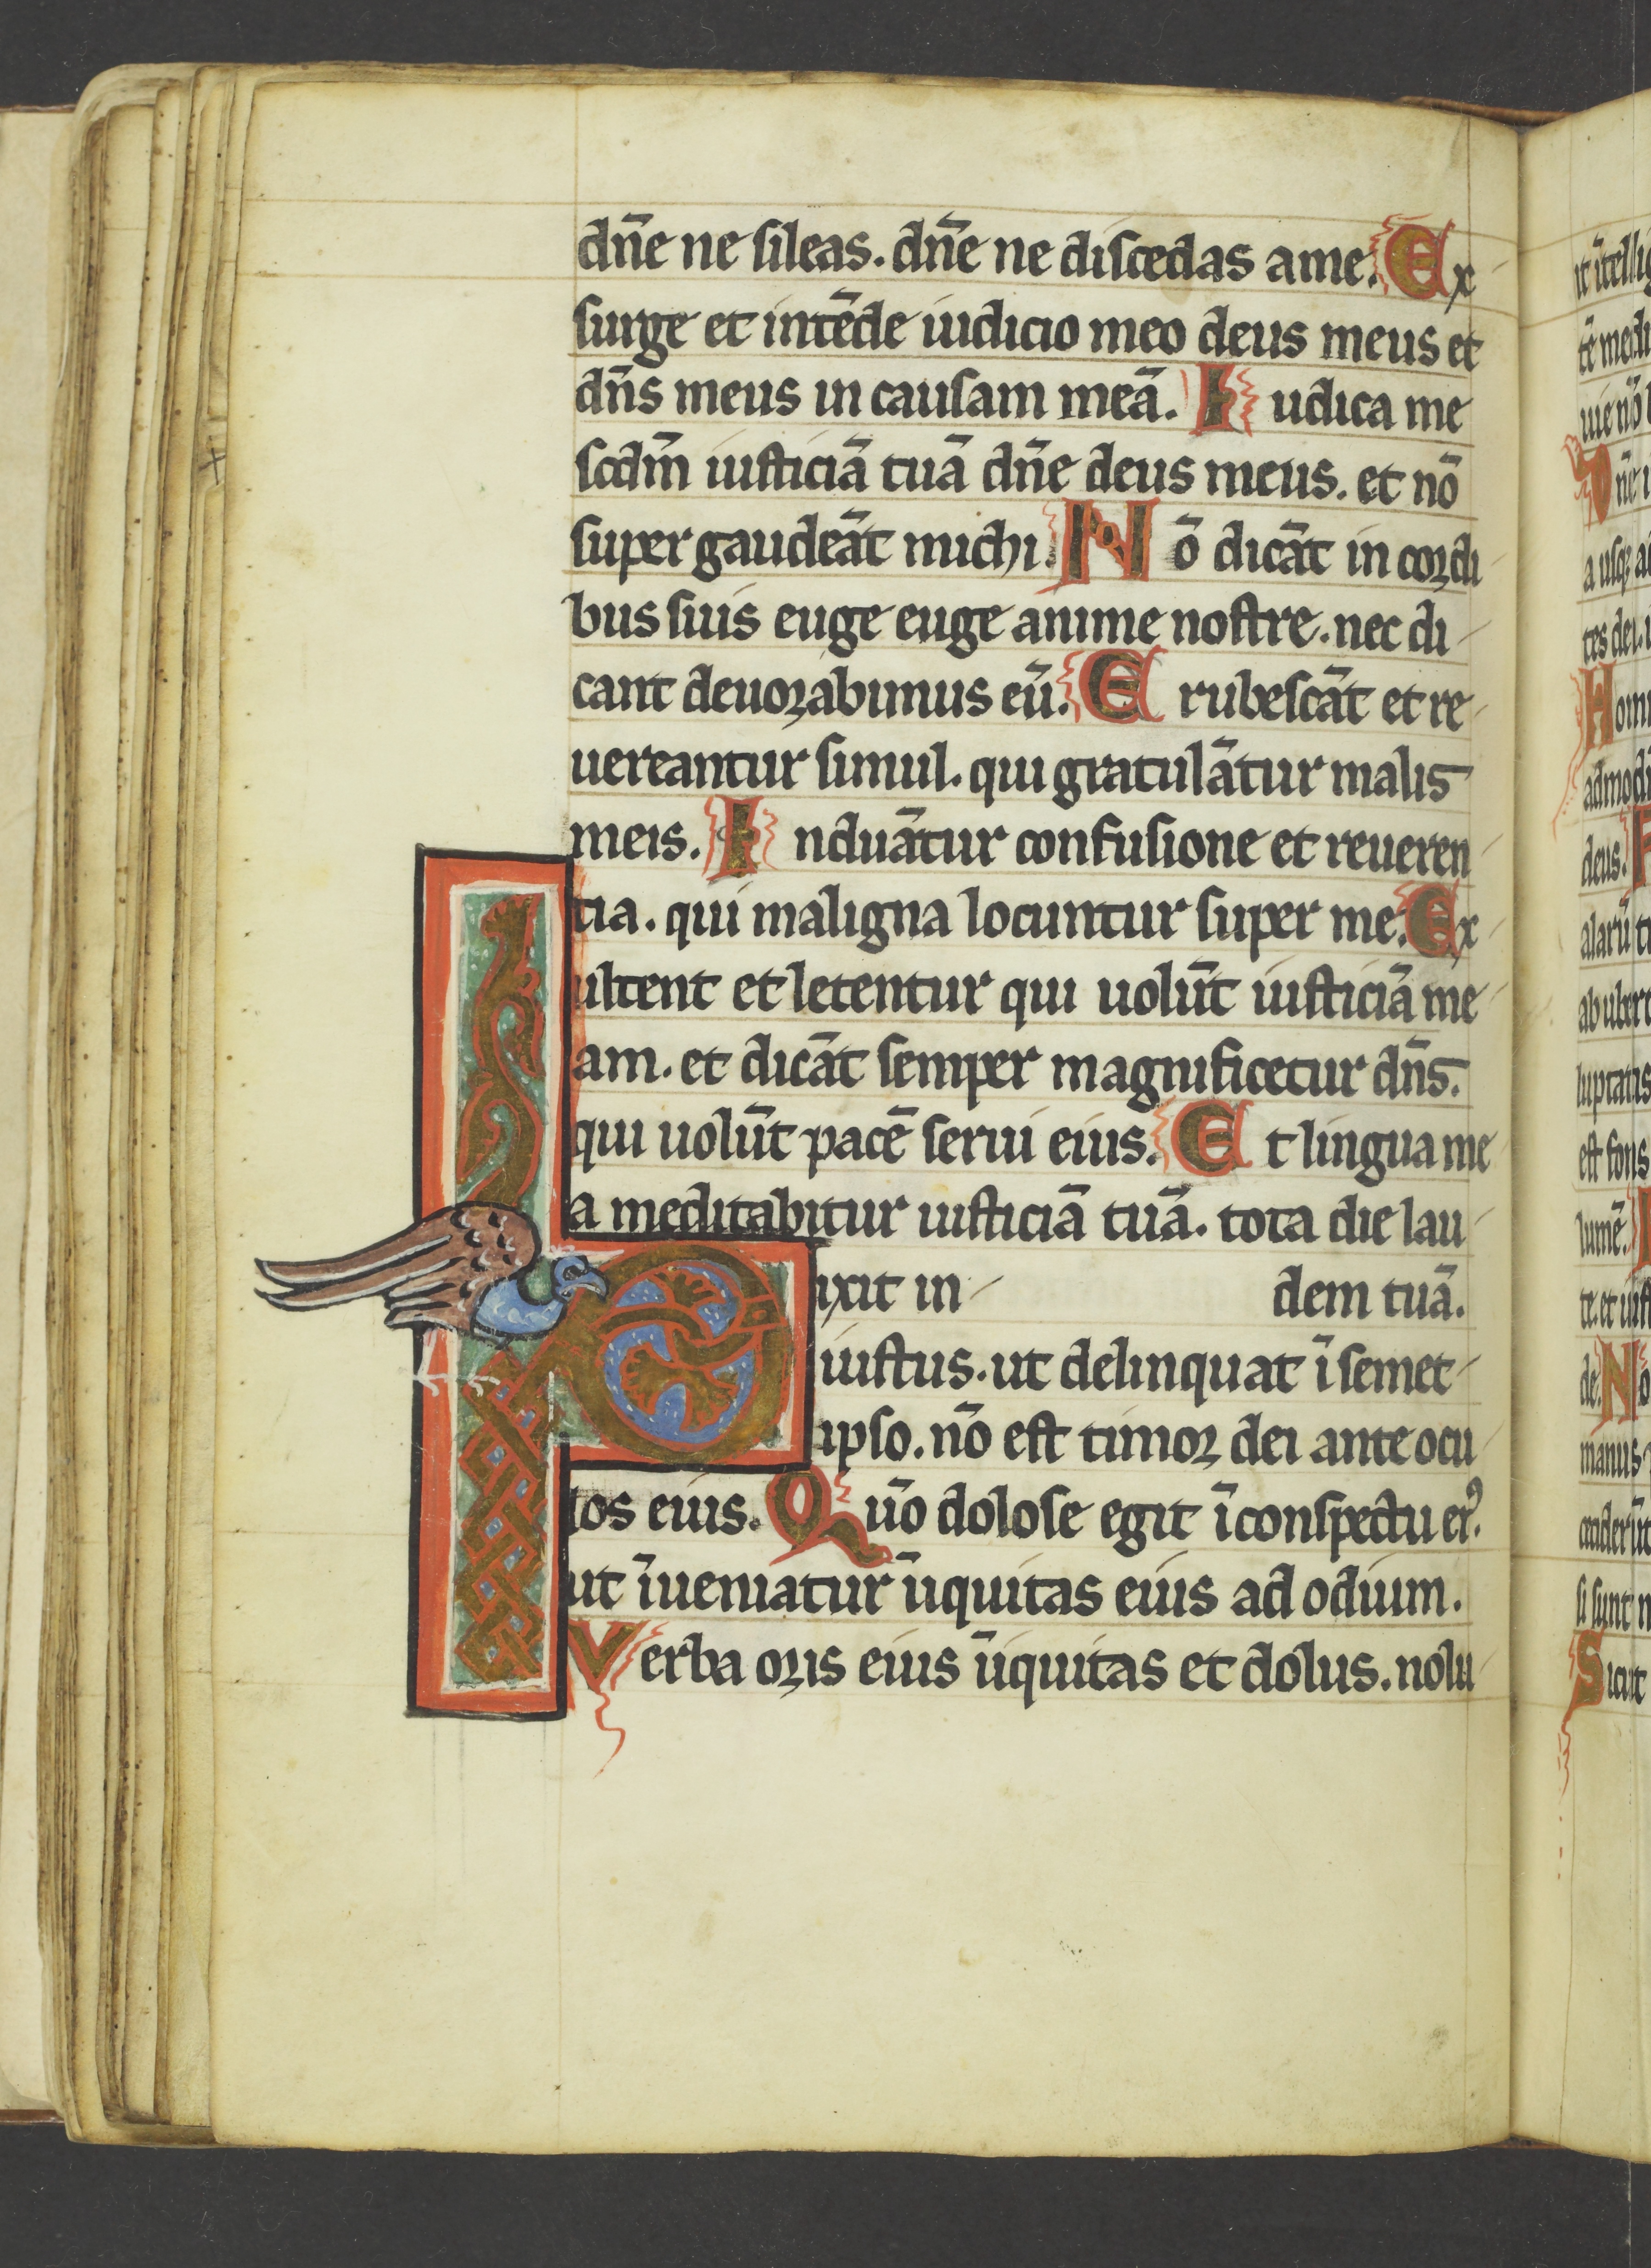 dn̄e ne sileas. dn̄e ne discedas ame. Ex
surge et intēde iudicio meo deus meus et
dn̄s meus in causam meā. I udica me
scdm̄ iusticiā tuā dn̄e deus meus. et nō
super gaudeāt michi. N ō dicāt in cordi
bus suis euge euge anime nostre. nec di
cant deuorabimus eū. E rubescāt et re
uereantur simul. qui gratulātur malis
meis. I nduātur confusione et reueren
tia. qui maligna locuntur super me. Ex
ultent et letentur qui uolūt iusticiā me
am. et dicāt semper magnificetur dn̄s.
qui uolūt pacē serui eius. E t lingua me
a meditabitur iusticiā tuā. tota die lau
dem tuā.
D ixit in
iustus. ut delinquat ī semet
ipso. nō est timor dei ante ocu
los eius. Q uō dolose egit ī conspectu eiꝰ.
ut īueniatur īiquitas eius ad odium.
V erba oris eius īiquitas et dolus. nolu
N
S icut